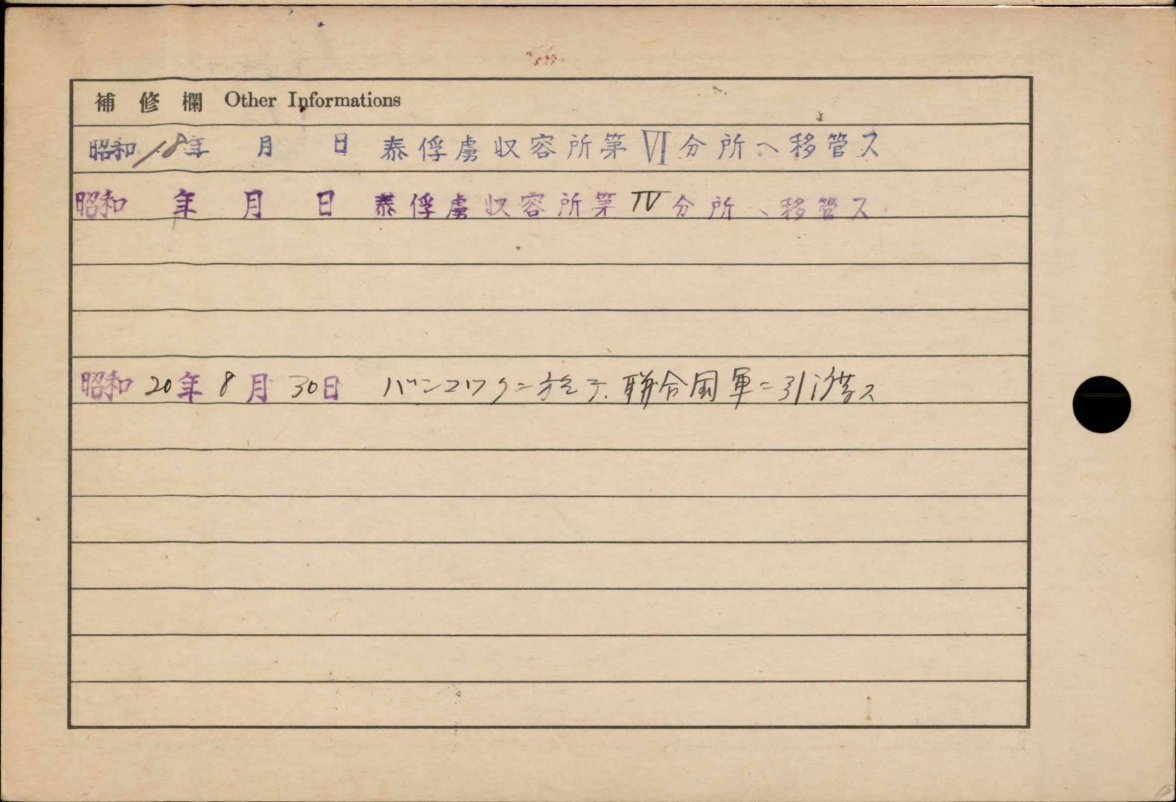 補修欄 Other Informations
昭和18年 月 日 泰俘虜収容所第Ⅵ分所へ移管ス
昭和 年 月 日 泰俘虜収容所第Ⅳ分所へ移管ス
昭和20年8月30日 バンコックニ於テ聯合国軍ニ引渡ス